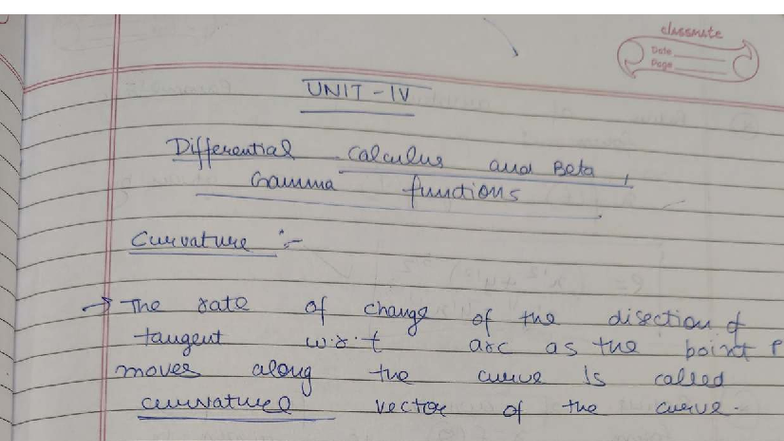 classmate
Date
Page
UNIT - IV
Differential Calculus and Beta,
Gamma functions
Curvature :-
→ The rate of change of the direction of
tangent w.r.t arc as the point P
moves along the curve is called
curvature vector of the curve.